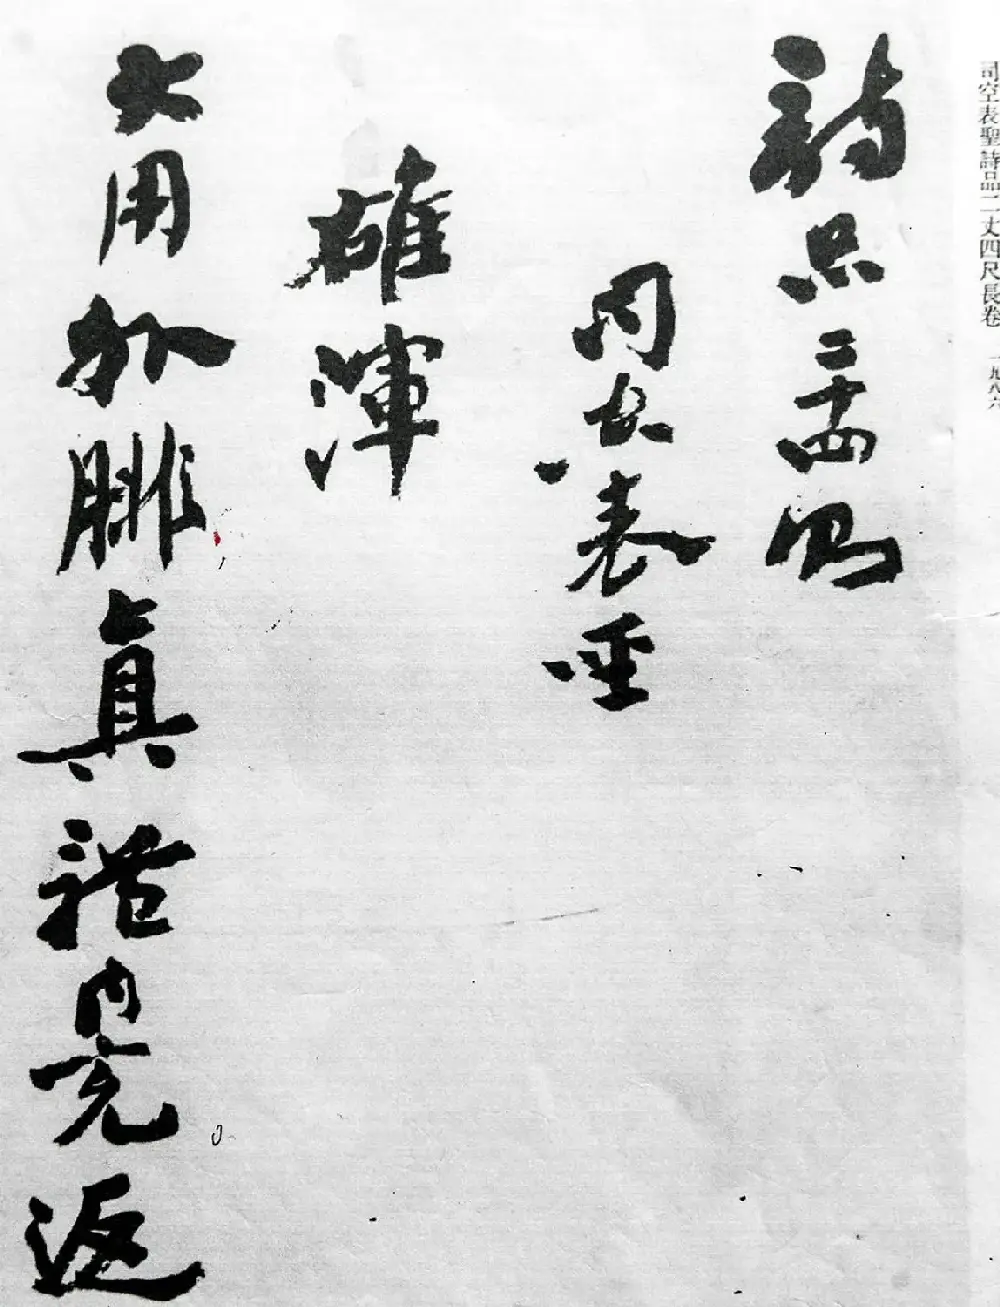 司空表聖詩品二丈四尺長卷 一九八六
詩品二十四則
司空表聖
雄渾
大用外腓眞體内充返